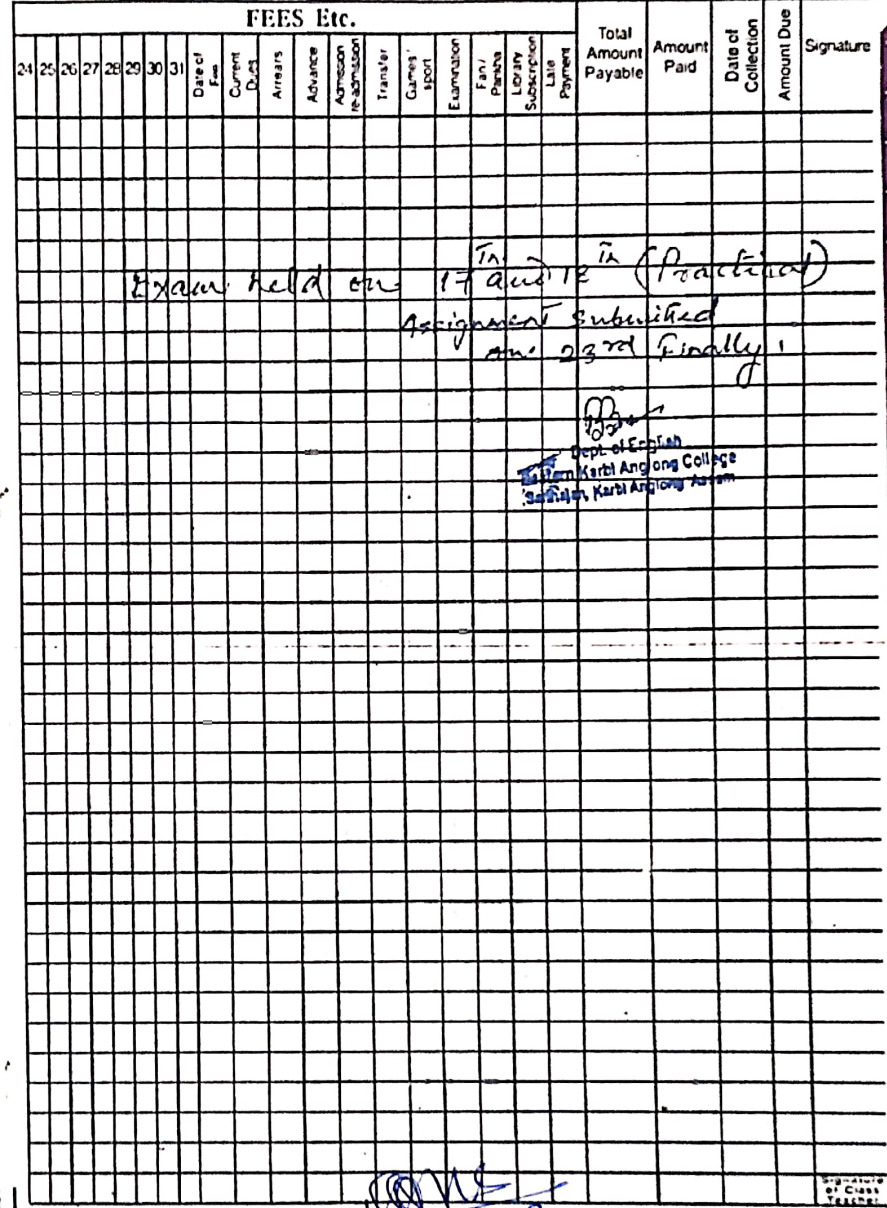 FEES Etc.
24 25 26 27 28 29 30 31 Date of Fee Current Dues Arrears Advance Admission re-admission Transfer Games' sport Examination Fan / Pankha Library Subscription Late Payment Total Amount Payable Amount Paid Date of Collection Amount Due Signature
Exam held on 17th and 18th (Practical)
Assignment Submitted
on 23rd Finally
Dept. of English
Eastern Karbi Anglong College
Sarihajan, Karbi Anglong Assam
Signature
of Class
Teacher